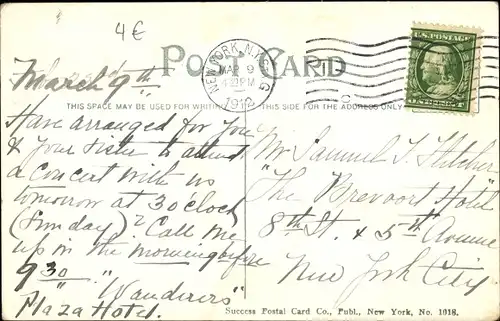 4€
POST CARD
NEW YORK, N.Y. STA. G
MAR 9
PM
1912
U.S. POSTAGE
March 9th
THIS SPACE MAY BE USED FOR WRITING
THIS SIDE FOR THE ADDRESS ONLY
Have arranged for you
& your sister to attend
a concert with us
tomorrow at 3 oclock
(Sunday)? Call me
up in the morning before
9 30. "Wanderers"
Plaza Hotel.
Mr Samuel T. Fletcher
"The Brevoort Hotel"
8th St. & 5th Avenue
New York City
Success Postal Card Co., Publ., New York, No. 1018.